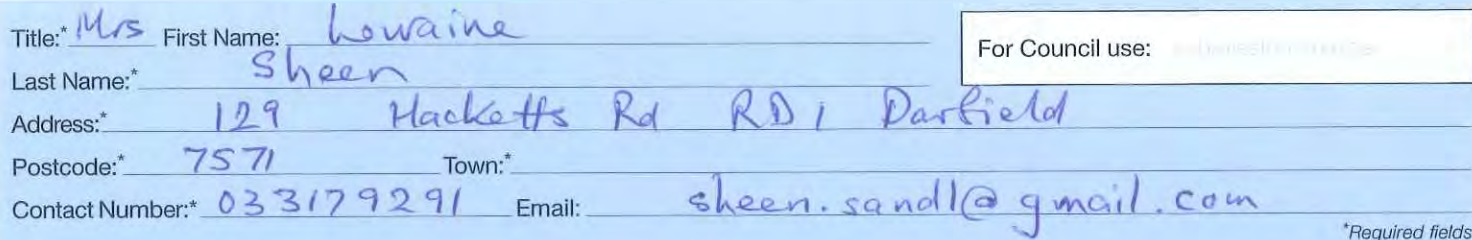 Title:* Mrs First Name: Lorraine For Council use:
Last Name:* Sheen
Address:* 129 Hacketts Rd RD1 Darfield
Postcode:* 7571 Town:*
Contact Number:* 033179291 Email: sheen.sandl@gmail.com
*Required fields